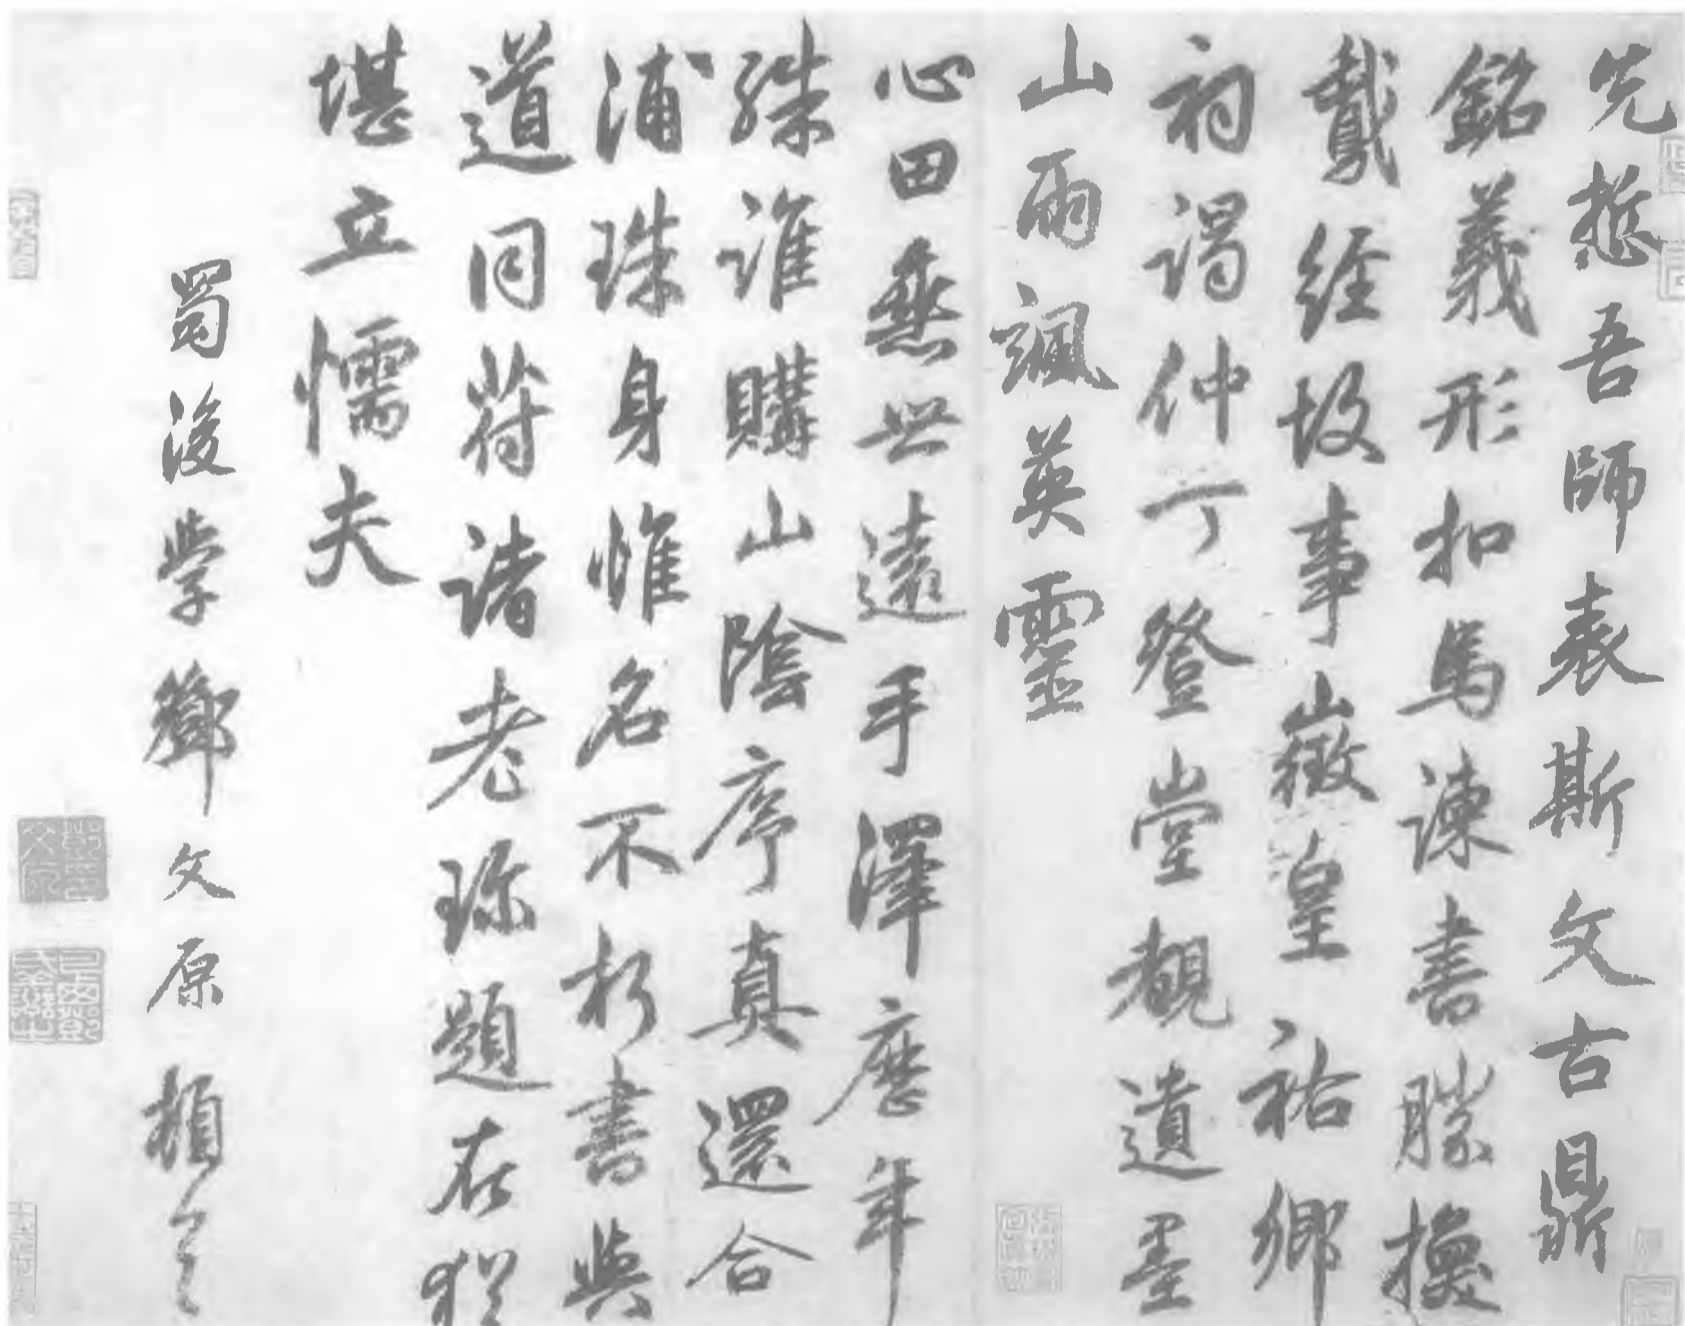 先哲吾師表斯文古鼎
銘義形扣馬諫書勝換
鵞經故事嚴皇祐鄉
祠謁仲丁登堂觀遺墨
山雨颯英靈
心田無世遠手澤歷年
殊誰購山陰序真還合
浦珠身惟名不朽書與
道同符諸老珎題在猶
堪立懦夫
蜀後學鄧文原頓首